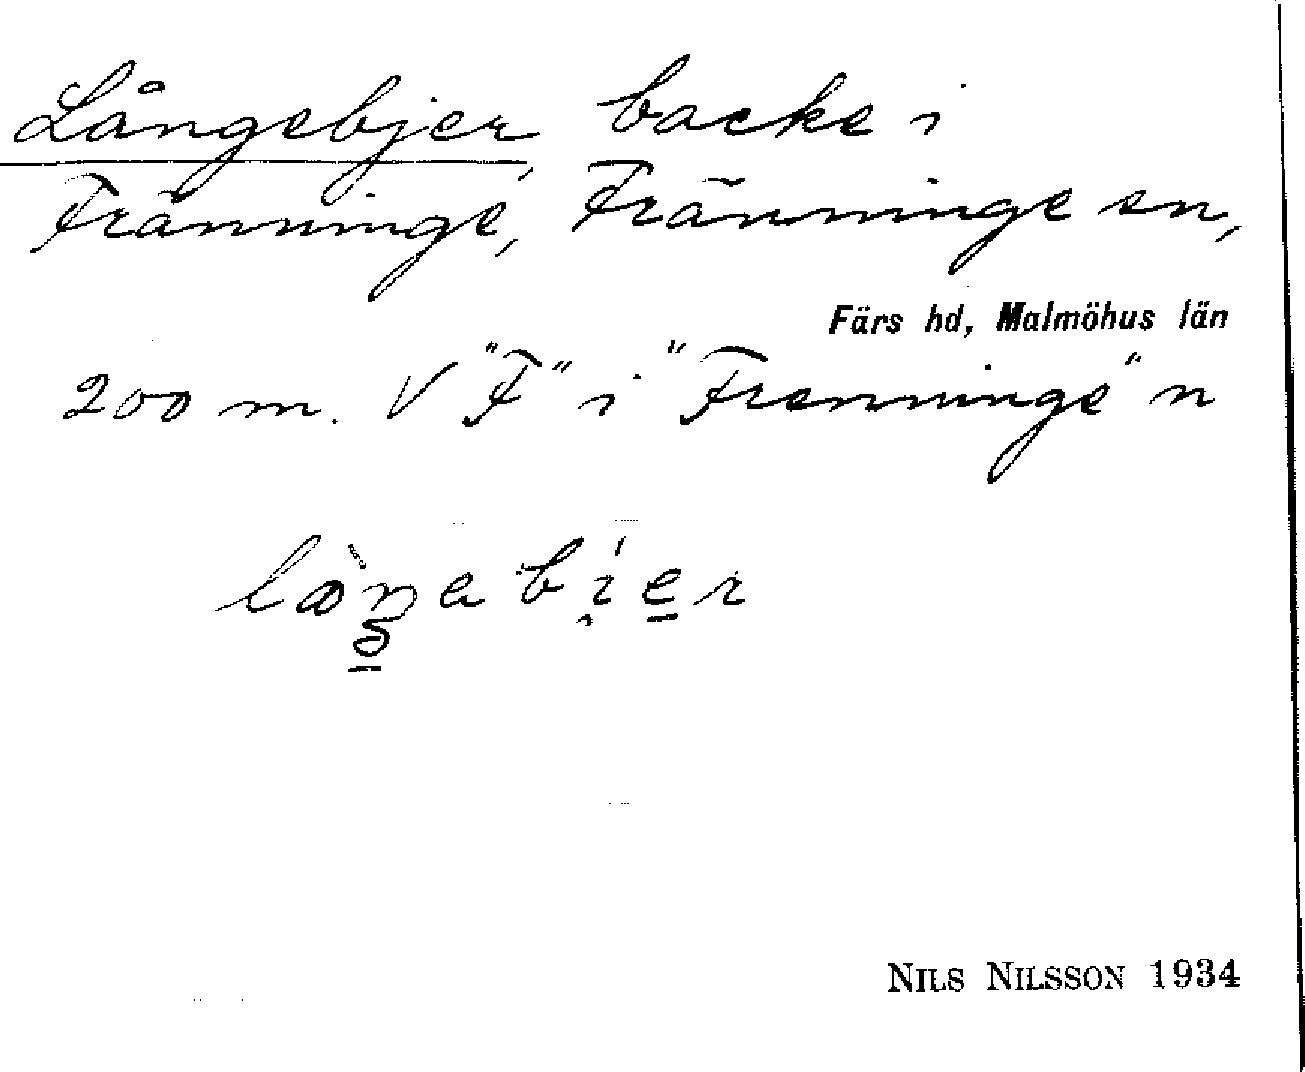 Långebjer, backe i
Fränninge, Fränninge sn,
Färs hd, Malmöhus län
200 m. V "F" i "Frenninge" n
NILS NILSSON 1934